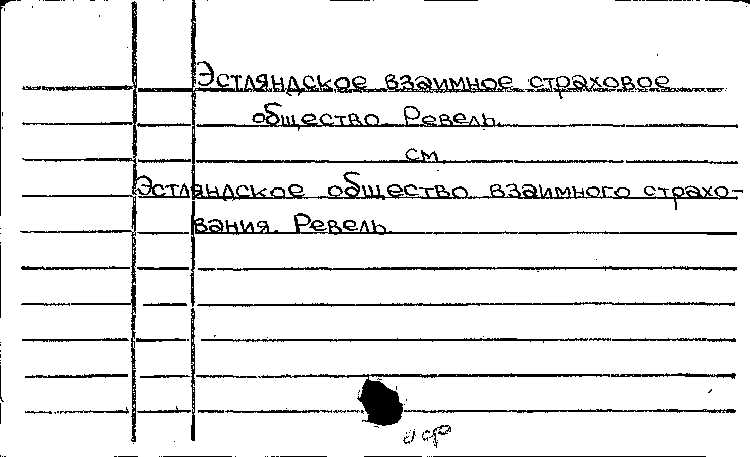 Эстляндское взаимное страховое
общество. Ревель.
см.
Эстляндское общество взаимного страхо-
вания. Ревель.